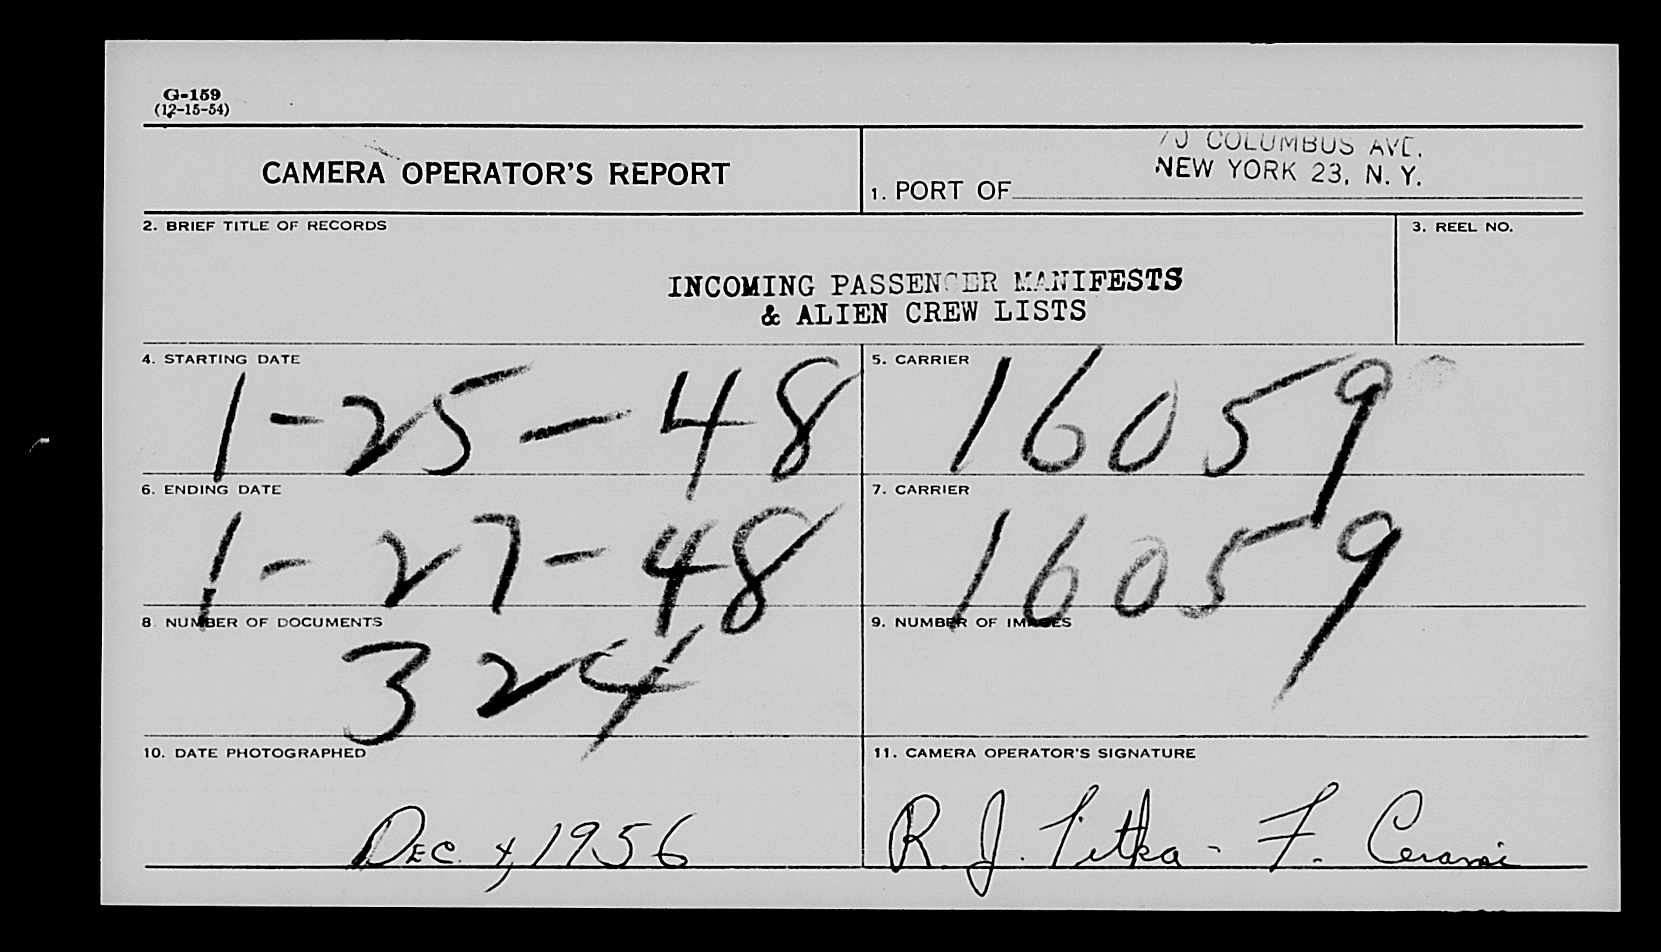 G-159
(12-15-54)
CAMERA OPERATOR'S REPORT
70 COLUMBUS AVE.
NEW YORK 23, N. Y.
1. PORT OF
2. BRIEF TITLE OF RECORDS
3. REEL NO.
INCOMING PASSENGER MANIFESTS
& ALIEN CREW LISTS
4. STARTING DATE
1-25-48
5. CARRIER
16059
6. ENDING DATE
1-27-48
7. CARRIER
16059
8. NUMBER OF DOCUMENTS
324
9. NUMBER OF IMAGES
10. DATE PHOTOGRAPHED
DEC. 4, 1956
11. CAMERA OPERATOR'S SIGNATURE
R. J. Titka - F. Cerami